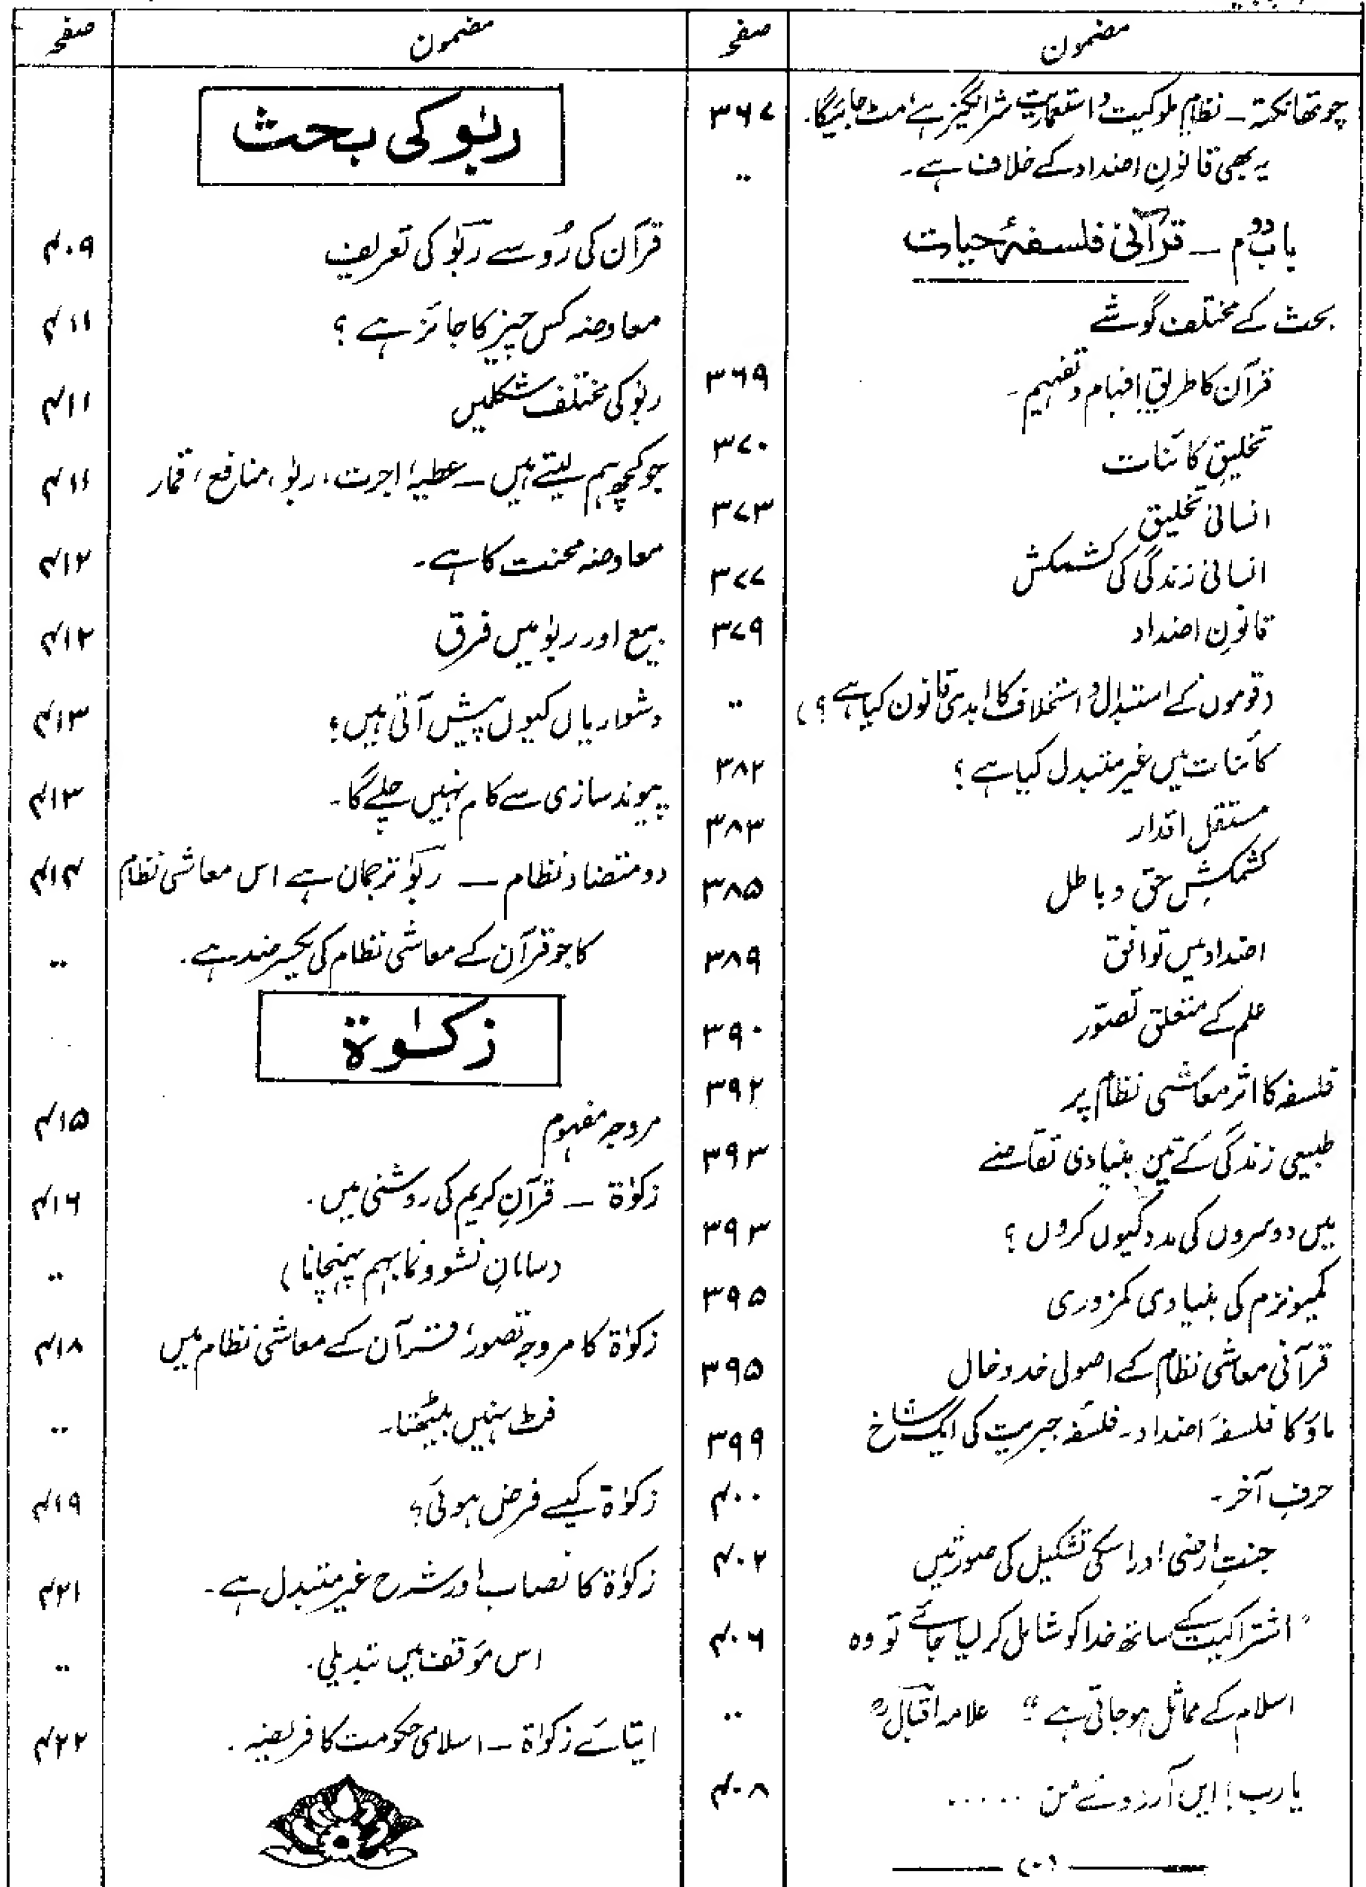 مضمون صفحہ
چوتھا نکتہ ـ نظامِ ملوکیت و استعماریت شر انگیز ہے، مٹ جائیگا۔ ۳۶۷
یہ بھی قانونِ اضداد کے خلاف ہے۔ ..
باب دوم ـ قرآنی فلسفۂ حیات
بحث کے مختلف گوشے
قرآن کا طریقِ افہام و تفہیم۔ ۳۶۹
تخلیقِ کائنات ۳۷۰
انسانی تخلیق ۳۷۳
انسانی زندگی کی کشمکش ۳۷۷
قانونِ اضداد ۳۷۹
(قوموں کے استبدال و استخلاف کا ابدی قانون کیا ہے؟) ..
کائنات میں غیر متبدل کیا ہے؟ ۳۸۲
مستقل اقدار ۳۸۳
کشمکشِ حق و باطل ۳۸۵
اضداد میں توافق ۳۸۹
علم کے متعلق تصوّر ۳۹۰
فلسفہ کا اثر معاشی نظام پر ۳۹۲
طبیعی زندگی کے تین بنیادی تقاضے ۳۹۳
میں دوسروں کی مدد کیوں کروں؟ ۳۹۳
کمیونزم کی بنیادی کمزوری ۳۹۵
قرآنی معاشی نظام کے اصولی خدوخال ۳۹۵
ماؤ کا فلسفۂ اضداد۔ فلسفۂ جبریت کی ایک شاخ ۳۹۹
حرفِ آخر۔ ۴۰۰
جنتِ ارضی اور اسکی تشکیل کی صورتیں ۴۰۲
"اشتراکیت کے ساتھ خدا کو شامل کر لیا جائے تو وہ ۴۰۶
اسلام کے مماثل ہو جاتی ہے" علامہ اقبالؒ ..
یارب! ایں آرزوئے من ..... ۴۰۸
(۰)
مضمون صفحہ
ربٰو کی بحث
قرآن کی رُو سے ربٰو کی تعریف ۴۰۹
معاوضہ کس چیز کا جائز ہے؟ ۴۱۱
ربٰو کی مختلف شکلیں ۴۱۱
جو کچھ ہم لیتے ہیں ـ عطیہ، اجرت، ربٰو، منافع، قمار ۴۱۱
معاوضہ محنت کا ہے۔ ۴۱۲
بیع اور ربٰو میں فرق ۴۱۲
دشواریاں کیوں پیش آتی ہیں؟ ۴۱۳
پیوند سازی سے کام نہیں چلے گا۔ ۴۱۳
دو متضاد نظام ـ ربٰو ترجمان ہے اس معاشی نظام ۴۱۴
کا جو قرآن کے معاشی نظام کی یکسر ضد ہے۔ ..
زکوٰۃ
مروجہ مفہوم ۴۱۵
زکوٰۃ ـ قرآنِ کریم کی روشنی میں۔ ۴۱۶
(سامانِ نشوونما بہم پہنچانا) ..
زکوٰۃ کا مروجہ تصور، قرآن کے معاشی نظام میں ۴۱۸
فٹ نہیں بیٹھتا۔ ..
زکوٰۃ کیسے فرض ہوئی؟ ۴۱۹
زکوٰۃ کا نصاب اور شرح غیر متبدل ہے۔ ۴۲۱
اس مؤقف میں تبدیلی۔ ..
ایتائے زکوٰۃ ـ اسلامی حکومت کا فریضہ۔ ۴۲۲